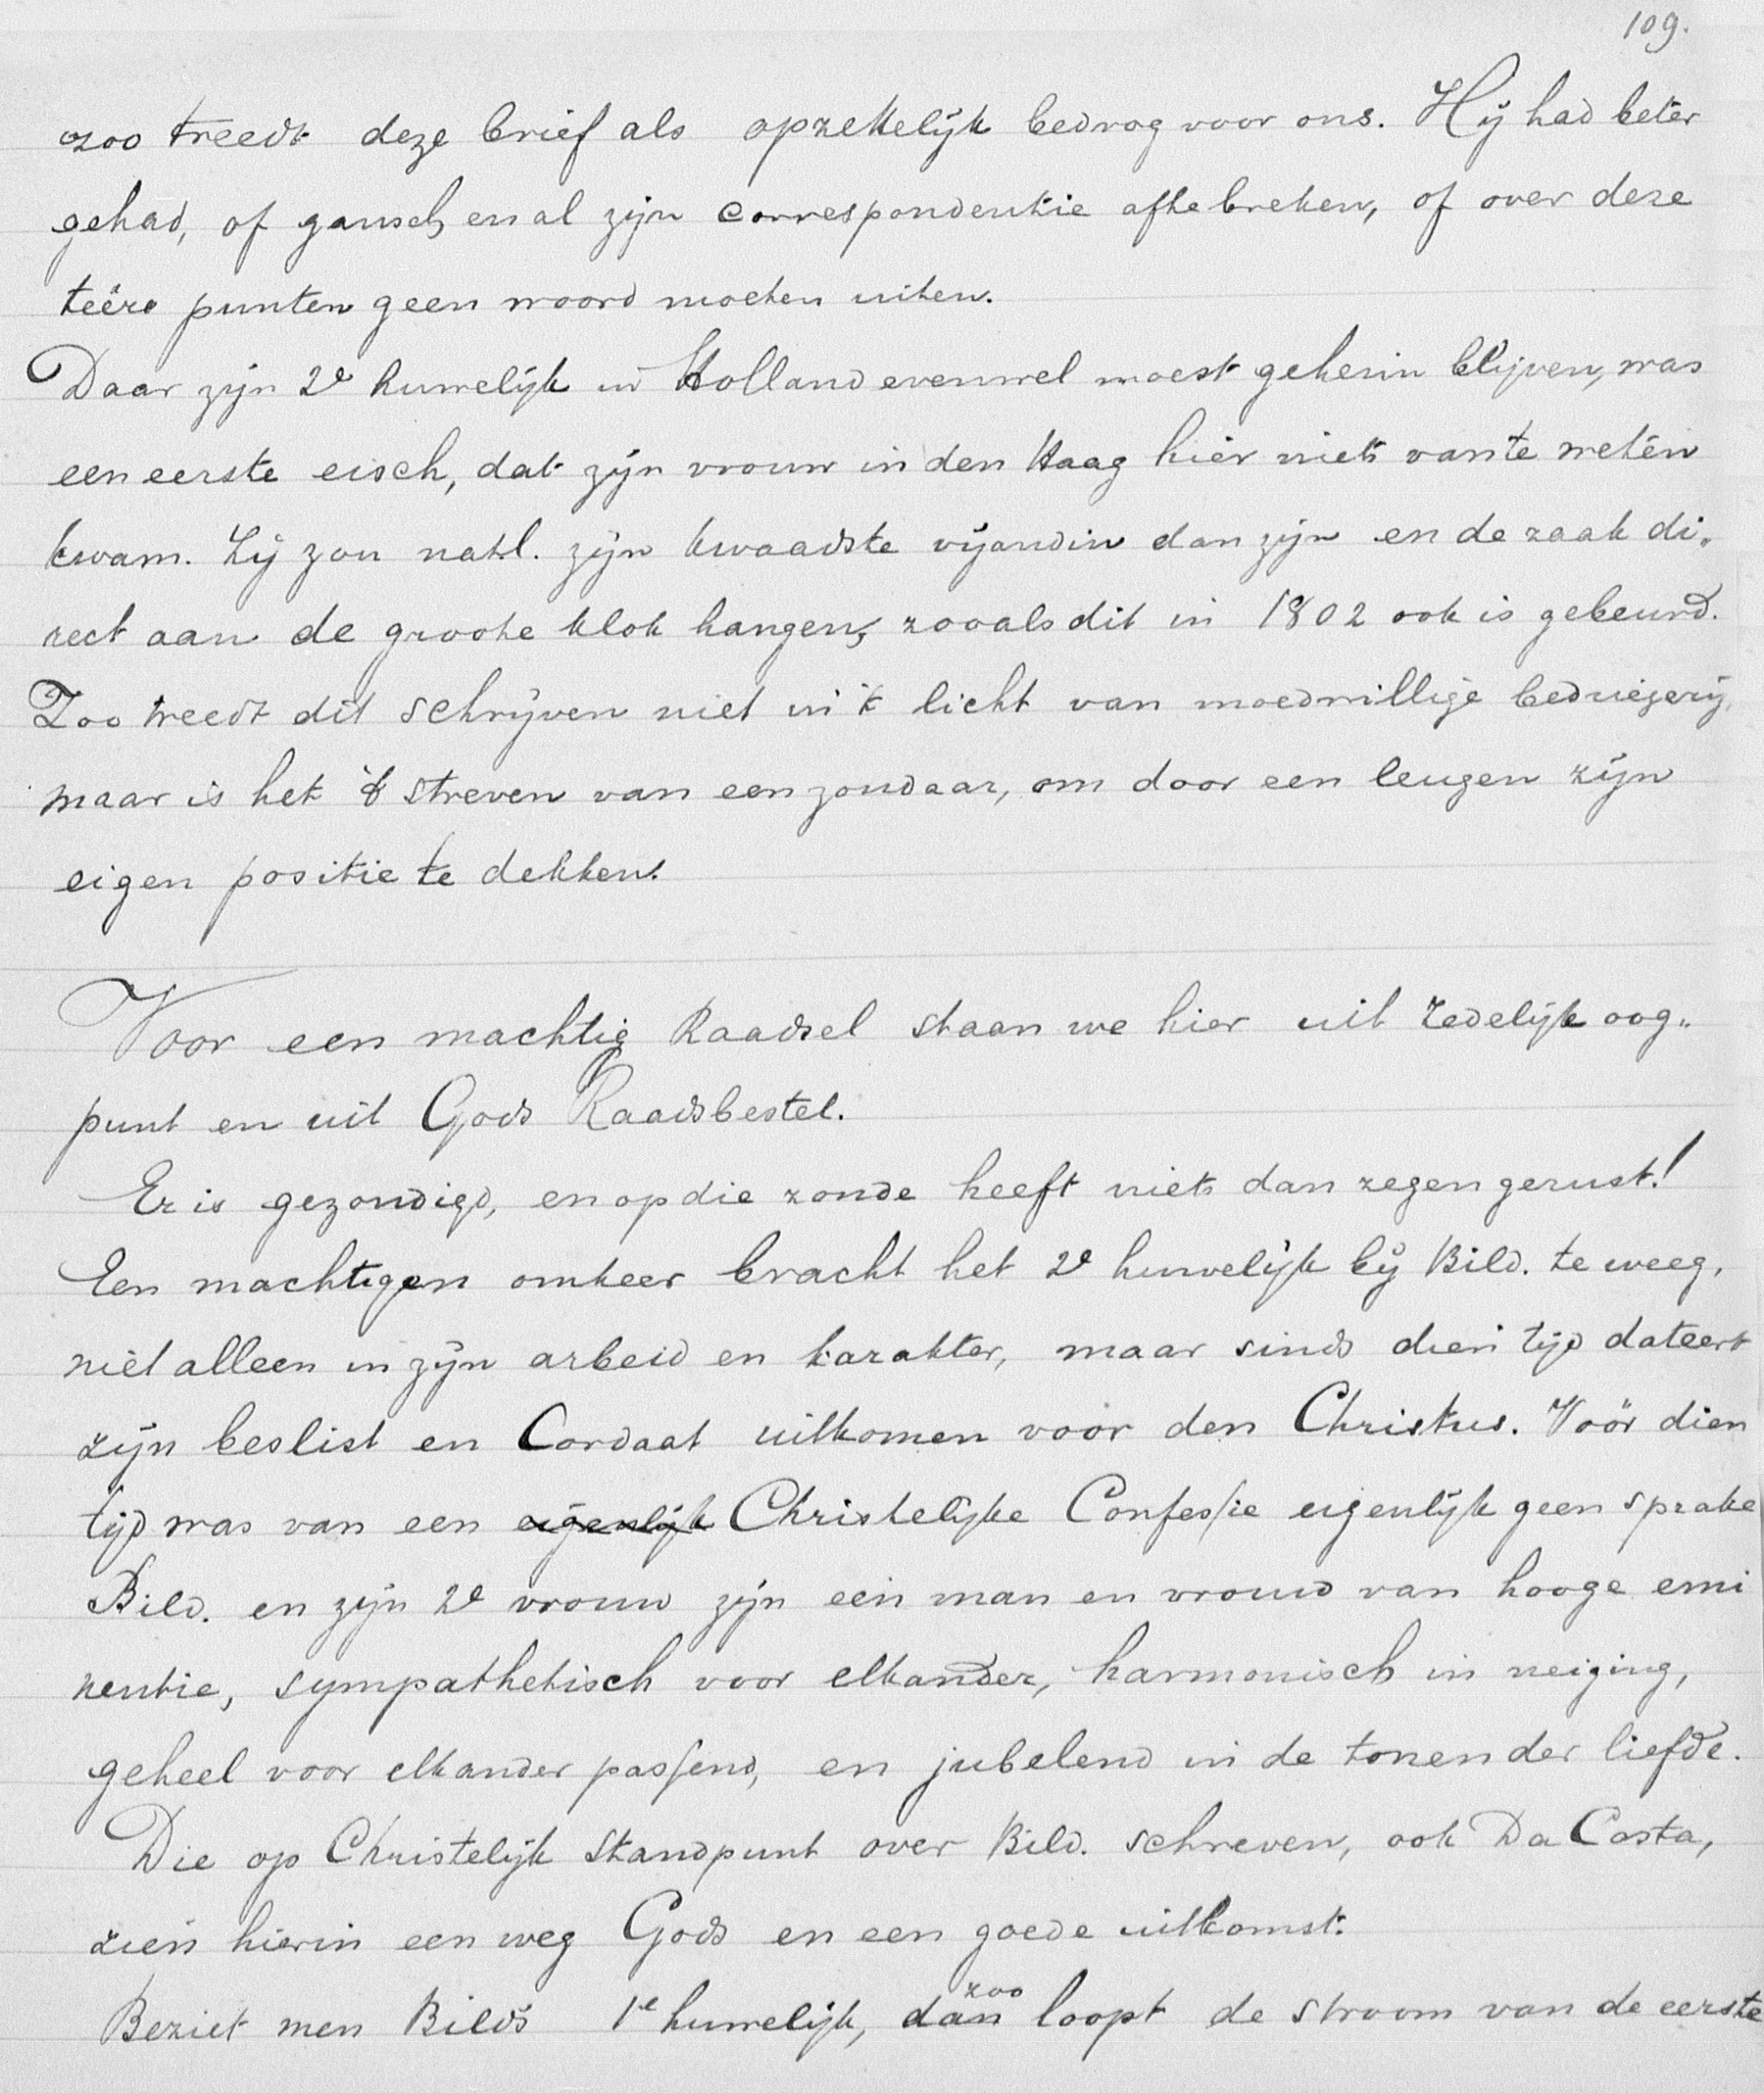 109.
zoo treedt deze brief als opzettelijk bedrog voor ons. Hij had beter
gehad, of gansch en al zijn correspondentie afte breken, of over deze
teêre punten geen woord moeten uiten.
Daar zijn 2e huwelijk in Holland evenwel moest geheim blijven, was
een eerste eisch, dat zijn vrouw in den Haag hier niets van te weten
kwam. Zij zou natl. zijn kwaadste vijandin dan zijn en de zaak di„
rect aan de groote klok hangen, zooals dit in 1802 ook is gebeurd.
Zoo treedt dit schrijven niet in 't licht van moedwillige bedriegerij,
maar is het 't streven van een zondaar, om door een leugen zijn
eigen positie te dekken.
Voor een machtig Raadsel staan we hier uit zedelijk oog„
punt en uit Gods Raadsbestel.
Er is gezondigd, en op die zonde heeft niets dan zegen gerust!
Een machtigen omkeer bracht het 2e huwelijk bij Bild. te weeg,
niet alleen in zijn arbeid en karakter, maar sinds dien tijd dateert
zijn beslist en Cordaat uitkomen voor den Christus. Vóór dien
tijd was van een eigenlijk Christelijke Confessie eigenlijk geen sprake
Bild. en zijn 2e vrouw zijn een man en vrouw van hooge emi
nentie, sympathetisch voor elkander, harmonisch in neiging,
geheel voor elkander passend, en jubelend in de tonen der liefde.
Die op Christelijk standpunt over Bild. schreven, ook Da Costa,
zien hierin een weg Gods en een goede uitkomst.
Beziet men Bild's 1e huwelijk, dan zoo loopt de stroom van de eerste